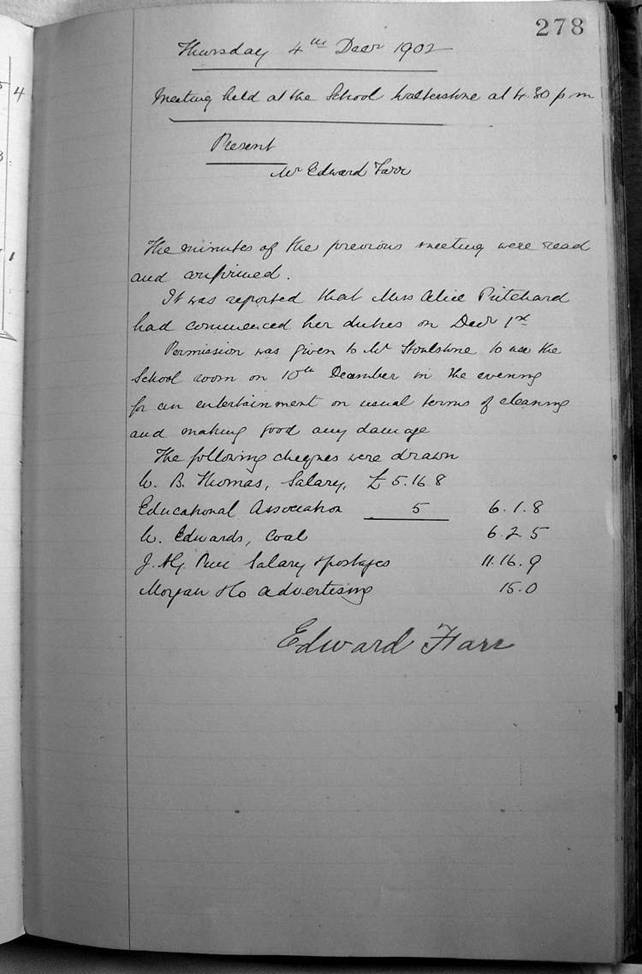 278
Thursday 4th Decr 1902
Meeting held at the School Walterstone at 4.30 p m
Present
Mr Edward Farr
The minutes of the previous meeting were read
and confirmed.
It was reported that Mrs Alice Pritchard
had commenced her duties on Decr 1st
Permission was given to Mr to use the
School room on 10th December in the evening
for an entertainment on usual terms of cleaning
and making good any damage
The following cheques were drawn
W. B. Thomas, Salary, £5.16.8
Educational Association 5 6.1.8
W. Edwards, Coal 6.2.5
Salary & postages 11.16.9
Morgan & Co advertising 15.0
Edward Farr
4
1